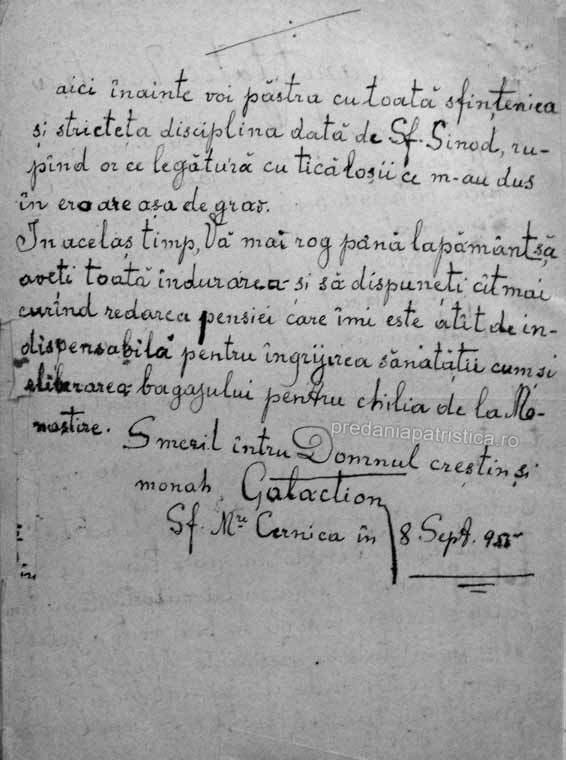 aici înainte voi păstra cu toată sfințenia
și stricteța disciplina dată de Sf. Sinod, ru-
pînd or ce legătură cu ticăloșii ce m-au dus
în eroare așa de grav.
In acelaș timp, Vă mai rog până la pământ să
aveti toată îndurarea si să dispuneți cît mai
curînd redarea pensiei care îmi este atît de in-
dispensabilă pentru îngrijirea sănătății cum si
eliberarea bagajului pentru chilia de la Mo-
nastire.
predaniapatristica.ro
Smeril întru Domnul creștin și
monah Galaction
Sf. Mre Cernica în 8 Sept. 955